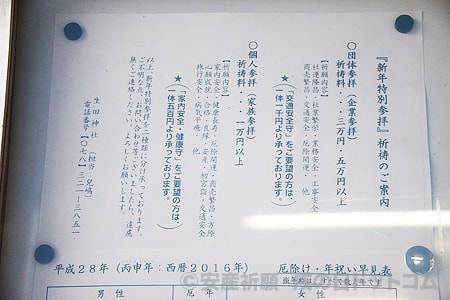 『新年特別参拝』祈祷のご案内
○団体参拝(企業参拝)
祈祷料・・・三万円・五万円以上
【祈願内容】
社運隆昌・社業繁栄・業務安全・工事安全
商売繁昌・交通安全・厄除開運・他
★「交通安全守」をご要望の方は、
(一体一千円より承っております。)
○個人参拝(家族参拝)
祈祷料・・・一万円以上
【祈願内容】
家内安全・健康長寿・厄除開運・商売繁昌・方除
心願成就・合格・良縁・安産・初宮詣・交通安全
旅行安全・病気平癒・他
★「家内安全・健康守」をご要望の方は、
一体五百円より承っております。
以上『新年特別参拝』を二種類に分け承っております。
ご不明な点、お問い合わせ等ございましたら、遠慮
無くご連絡ください。よろしくお願いします。
生田神社(担当 兒嶋)
電話番号【〇七八】三二一-三八五一
平成28年(丙申年:西暦2016年) 厄除け・年祝い早見表
男性 厄年 女性
安産祈願 ドットコム